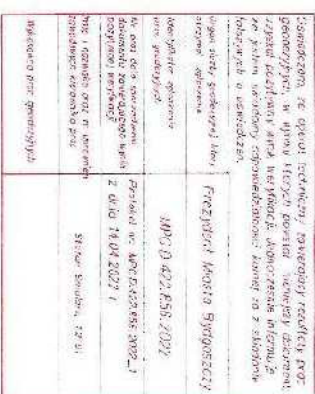 Oświadczam, że operat techniczny zawierający rezultaty prac
geodezyjnych, w wyniku których powstał niniejszy dokument,
uzyskał pozytywny wynik weryfikacji. Jednocześnie informuję,
że jestem świadomy odpowiedzialności karnej za składanie
fałszywych oświadczeń.
Organ służby geodezyjnej który
otrzymał zgłoszenie
Prezydent Miasta Bydgoszczy
Identyfikator zgłoszenia
prac geodezyjnych
MPG.D.422.856.2022
Nr oraz data sporządzenia
dokumentu zawierającego wynik
pozytywnej weryfikacji
Protokół nr MPG.D.422.856.2022_1
z dnia
Imię i nazwisko oraz nr uprawnień
zawodowych kierownika prac
Wykonawca prac geodezyjnych